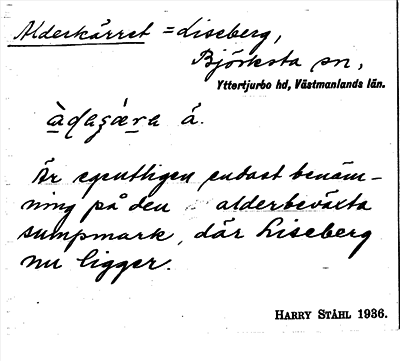 Alderkärret = Liseberg,
Björksta sn,
Yttertjurbo hd, Västmanlands län.
å.
Är egentligen endast benäm-
ning på den alderbeväxta
sumpmark, där Liseberg
nu ligger.
HARRY STÅHL 1936.